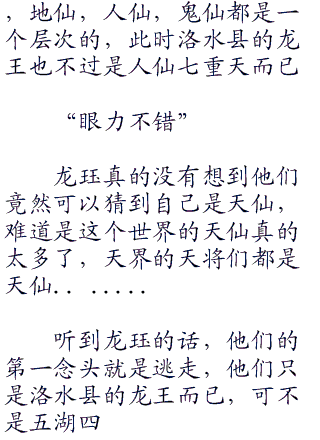 ，地仙，人仙，鬼仙都是一
个层次的，此时洛水县的龙
王也不过是人仙七重天而已
“眼力不错”
龙珏真的没有想到他们
竟然可以猜到自己是天仙，
难道是这个世界的天仙真的
太多了，天界的天将们都是
天仙．．．．．．．
听到龙珏的话，他们的
第一念头就是逃走，他们只
是洛水县的龙王而已，可不
是五湖四